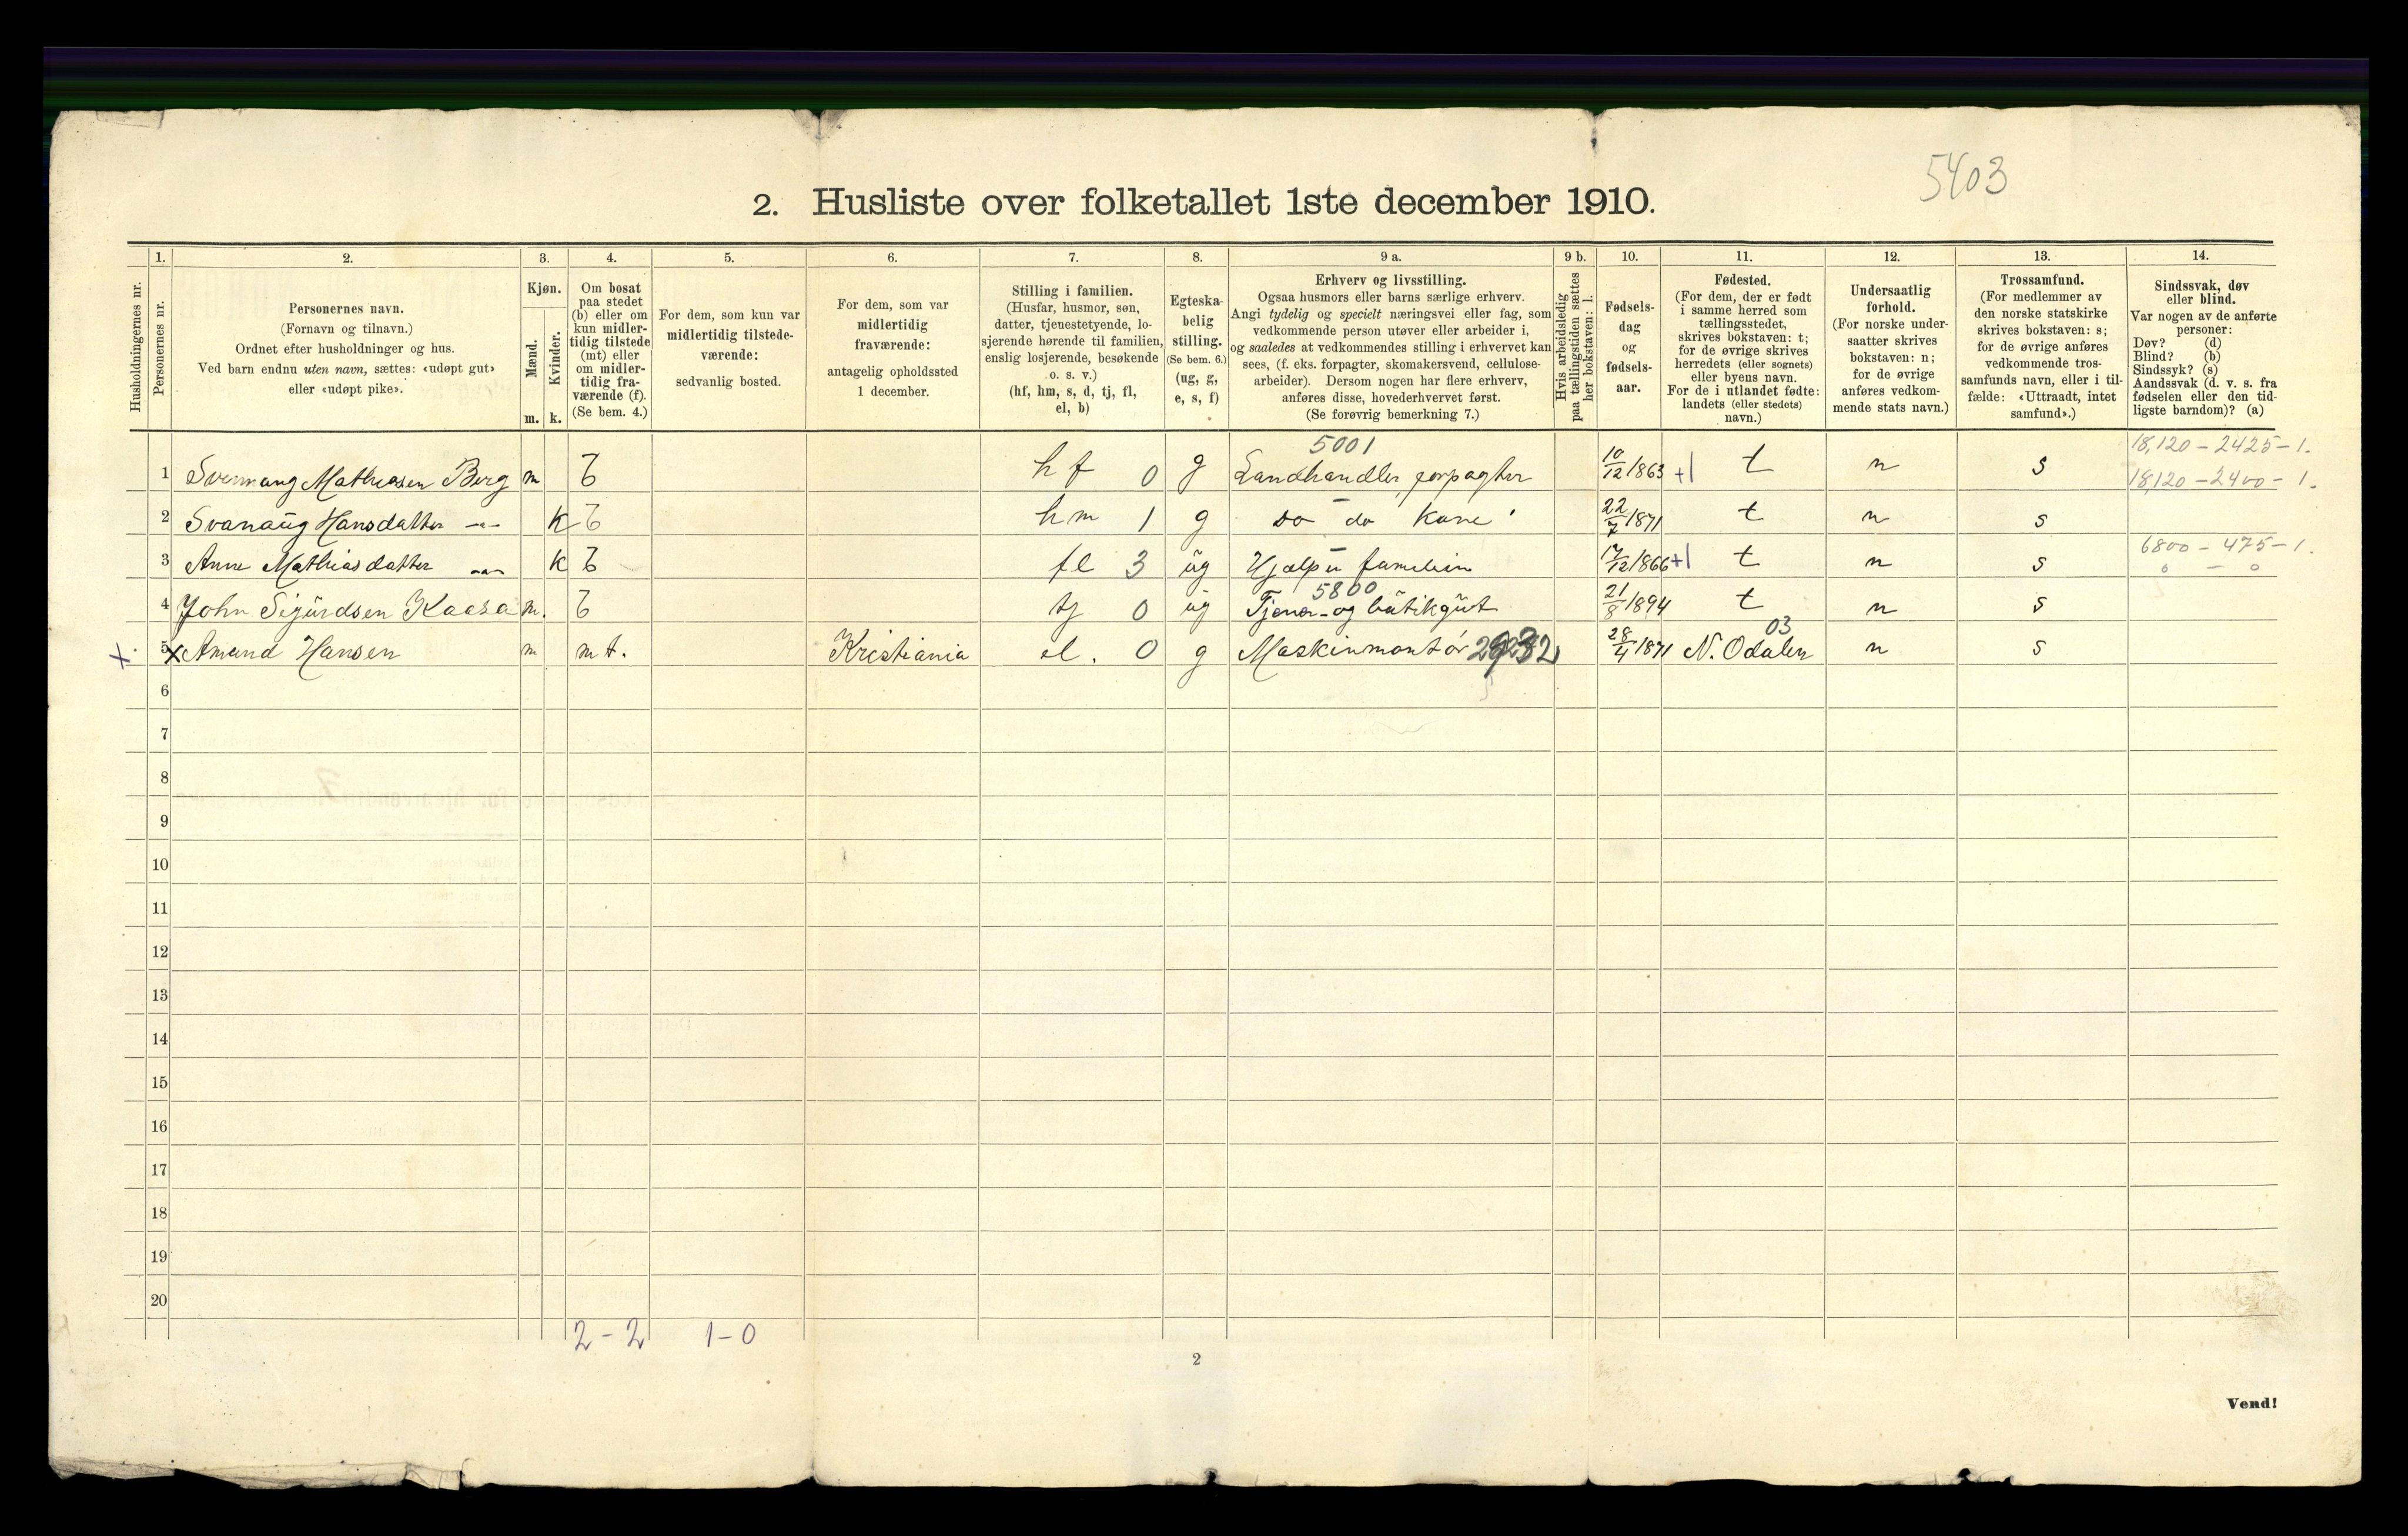 5403
2. Husliste over folketallet 1ste december 1910.
Husholdningernes nr.
1.
Personernes nr.
2.
Personernes navn.
(Fornavn og tilnavn.)
Ordnet efter husholdninger og hus.
Ved barn endnu uten navn, sættes: «udøpt gut»
eller «udøpt pike».
3.
Kjøn.
Mænd.
Kvinder.
m. k.
4.
Om bosat
paa stedet
(b) eller om
kun midler-
tidig tilstede
(mt) eller
om midler-
tidig fra-
værende (f).
(Se bem. 4.)
5.
For dem, som kun var
midlertidig tilstede-
værende:
sedvanlig bosted.
6.
For dem, som var
midlertidig
fraværende:
antagelig opholdssted
1 december.
7.
Stilling i familien.
(Husfar, husmor, søn,
datter, tjenestetyende, lo-
sjerende hørende til familien,
enslig losjerende, besøkende
o. s. v.)
(hf, hm, s, d, tj, fl,
el, b)
8.
Egteska-
belig
stilling.
(Se bem. 6.)
(ug, g,
e, s, f)
9 a.
Erhverv og livsstilling.
Ogsaa husmors eller barns særlige erhverv.
Angi tydelig og specielt næringsvei eller fag, som
vedkommende person utøver eller arbeider i,
og saaledes at vedkommendes stilling i erhvervet kan
sees, (f. eks. forpagter, skomakersvend, cellulose-
arbeider). Dersom nogen har flere erhverv,
anføres disse, hovederhvervet først.
(Se forøvrig bemerkning 7.)
9 b.
Hvis arbeidsledig
paa tællingstiden sættes
her bokstaven: l.
10.
Fødsels-
dag
og
fødsels-
aar.
11.
Fødested.
(For dem, der er født
i samme herred som
tællingsstedet,
skrives bokstaven: t;
for de øvrige skrives
herredets (eller sognets)
eller byens navn.
For de i utlandet fødte:
landets (eller stedets)
navn.)
12.
Undersaatlig
forhold.
(For norske under-
saatter skrives
bokstaven: n;
for de øvrige
anføres vedkom-
mende stats navn.)
13.
Trossamfund.
(For medlemmer av
den norske statskirke
skrives bokstaven: s;
for de øvrige anføres
vedkommende tros-
samfunds navn, eller i til-
fælde: «Uttraadt, intet
samfund».)
14.
Sindssvak, døv
eller blind.
Var nogen av de anførte
personer:
Døv? (d)
Blind? (b)
Sindssyk? (s)
Aandssvak (d. v. s. fra
fødselen eller den tid-
ligste barndom)? (a)
5001
18,120 – 2425 – 1.
1 Mathiesen Berg m b hf 0 g Landhandler, forpagter 10/12 1863 +1 t n s 18,120 – 2400 – 1.
2 Svanaug Hansdatter –"– k b hm 1 g do do kone 22/7 1871 t n s
6800 – 475 – 1.
3 Anne Mathiasdatter –"– k b fl 3 ug Hjælp i familien 17/12 1866 +1 t n s 0 – 0
5800
4 John Sigurdsen Kaasa m. b tj 0 ug Tjener- og butikgut 21/8 1894 t n s
03
x 5 x Amund Hansen m mt. Kristiania el. 0 g Maskinmontør 28/4 1871 N. Odalen n s
6
7
8
9
10
11
12
13
14
15
16
17
18
19
20
2 – 2 1 – 0
2
Vend!